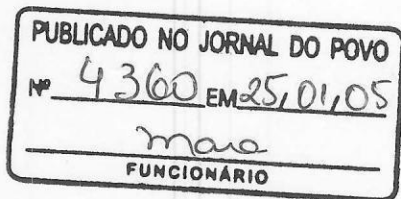 PUBLICADO NO JORNAL DO POVO
Nº 4360 EM 25,01,05
mara
FUNCIONÁRIO